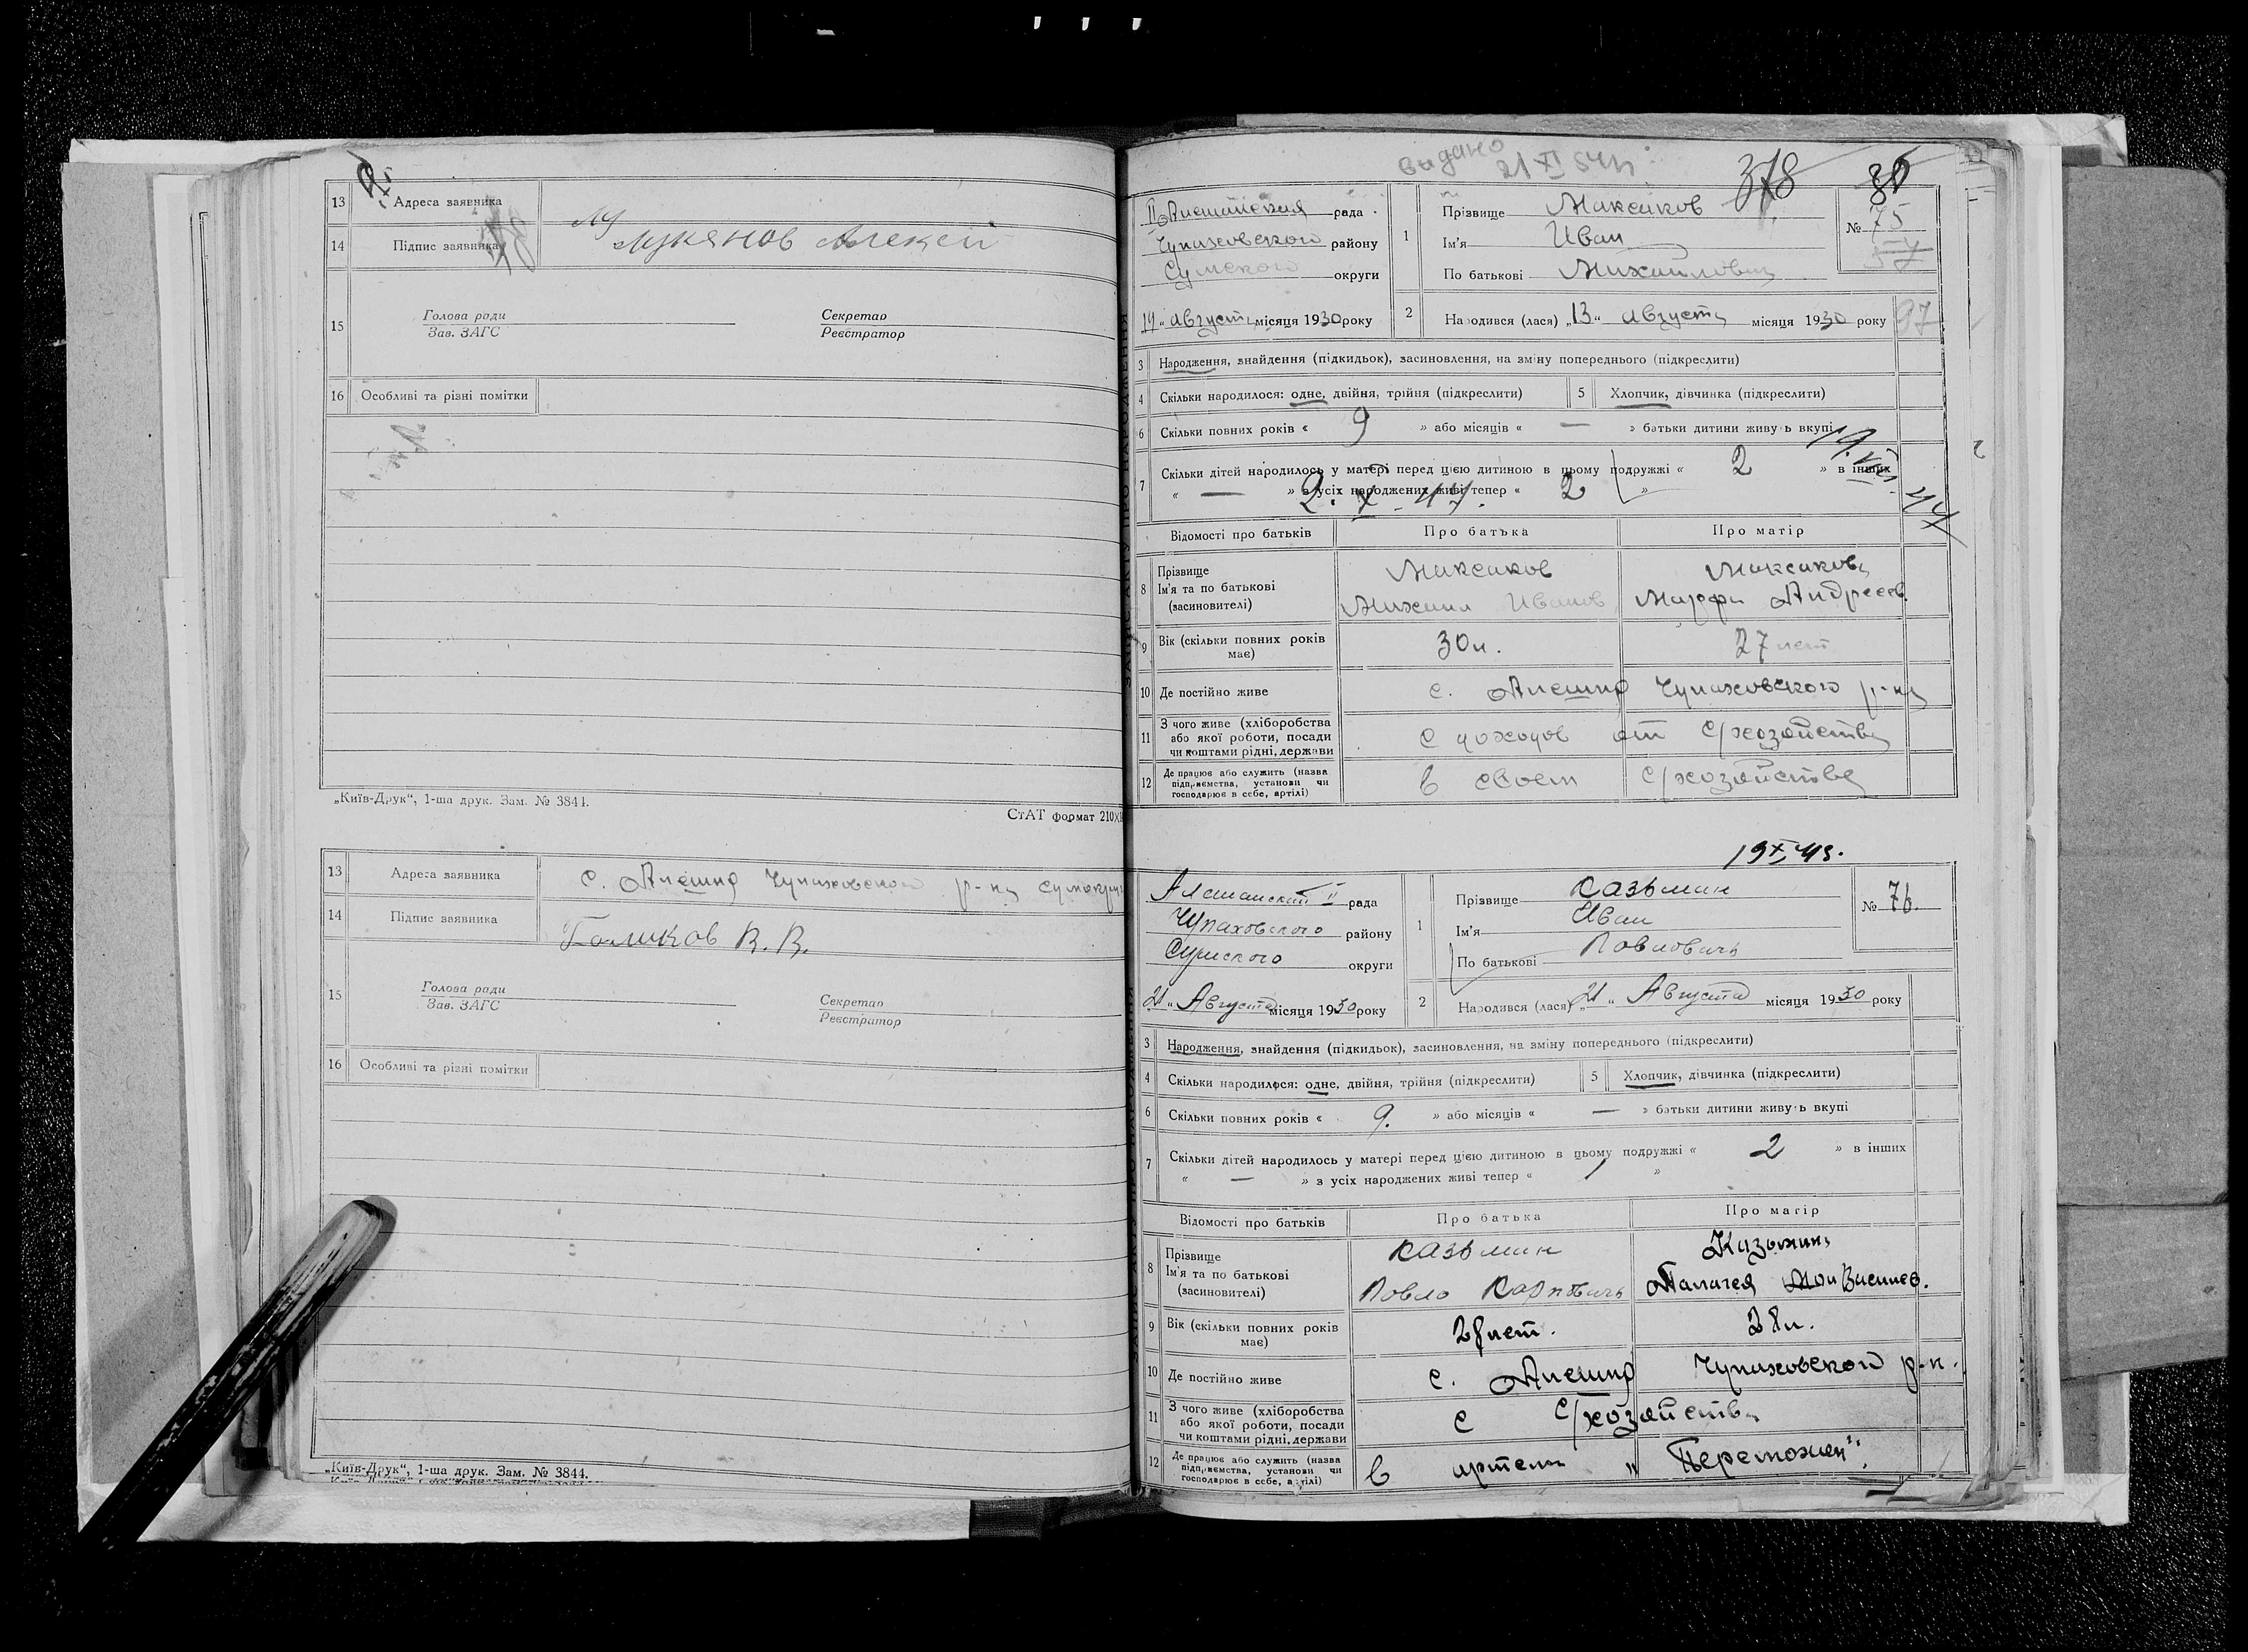 13 Адреса заявника
14 Підпис заявника Лукянов Алексей
15 Голова ради Секретар
Зав. ЗАГС Реєстратор
16 Особливі та різні помітки
„Київ-Друк“, 1-ша друк. Зам. № 3844.
СтАТ формат 210
13 Адреса заявника с. Алешня Чупаховского р-на
14 Підпис заявника
Голиков В. В.
15 Голова ради Секретар
Зав. ЗАГС Реєстратор
16 Особливі та різні помітки
„Київ-Друк“, 1-ша друк. Зам. № 3844.
выдано
21 XI 54
378
рада
Чупаховского району
Сумского округи
„19“ августа місяця 1930 року
1 Прізвище Максаков
Ім'я Иван
По батькові Михайлович
№ 75
57
97
2 Народився (лася) „13“ августа місяця 1930 року
3 Народження, знайдення (підкидьок), засиновлення, на зміну попереднього (підкреслити)
4 Скільки народилося: одне, двійня, трійня (підкреслити) 5 Хлопчик, дівчинка (підкреслити)
6 Скільки повних років « 9 » або місяців « — » батьки дитини живуть вкупі
7 Скільки дітей народилось у матері перед цією дитиною в цьому подружжі « 2 » в інших
« — » з усіх народжених живі тепер « 2 »
2. X - 47.
19. VII. 44
Відомості про батьків Про батька Про матір
8 Прізвище Максаков Максакова
Ім'я та по батькові
(засновителі) Михаил Иванов Марфа Андреев.
9 Вік (скільки повних років має) 30 л. 27 лет
10 Де постійно живе с. Алешня Чупаховского р-на
11 З чого живе (хліборобства або якої роботи, посади чи коштами рідні, держави с доходов от с/хозяйства
12 Де працює або служить (назва підприємства, установи чи господарює в себе, артілі) в своем с/хозяйстве
19 X 43.
Алешанский II рада
Чупаховского району
Сумского округи
„21“ Августа місяця 1930 року
1 Прізвище Казьмин
Ім'я Иван
По батькові Повлович
№ 76.
2 Народився (лася) „21“ Августа місяця 1930 року
3 Народження, знайдення (підкидьок), засиновлення, на зміну попереднього (підкреслити)
4 Скільки народилося: одне, двійня, трійня (підкреслити) 5 Хлопчик, дівчинка (підкреслити)
6 Скільки повних років « 9. » або місяців « — » батьки дитини живуть вкупі
7 Скільки дітей народилось у матері перед цією дитиною в цьому подружжі « 2 » в інших
« — » з усіх народжених живі тепер « 1 »
Відомості про батьків Про батька Про матір
8 Прізвище Казьмин Казьмина
Ім'я та по батькові
(засиновителі) Повло Карпович Палагея Василев.
9 Вік (скільки повних років має) 28 лет. 28 л.
10 Де постійно живе с. Алешня Чупаховского р-н.
11 З чого живе (хліборобства або якої роботи, посади чи коштами рідні, держави с с/хозяйства
12 Де працює або служить (назва підприємства, установи чи господарює в себе, артілі) в артели „Переможец“.